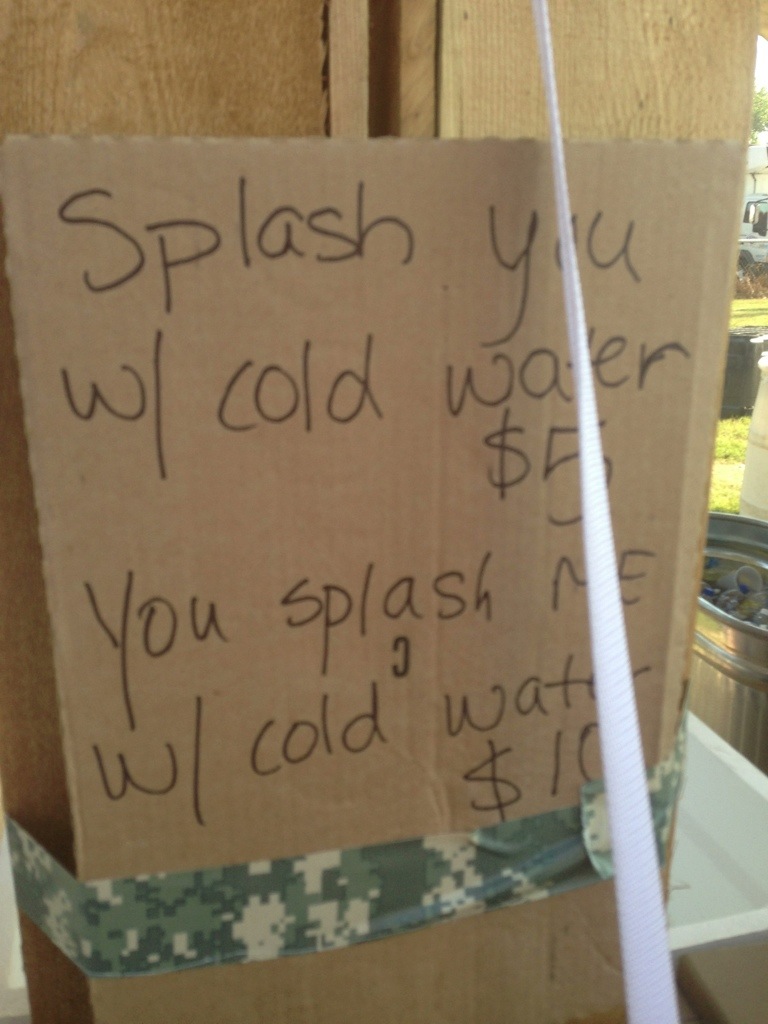 Splash you
w/ cold water
$5
You splash ME
w/ cold water
$10